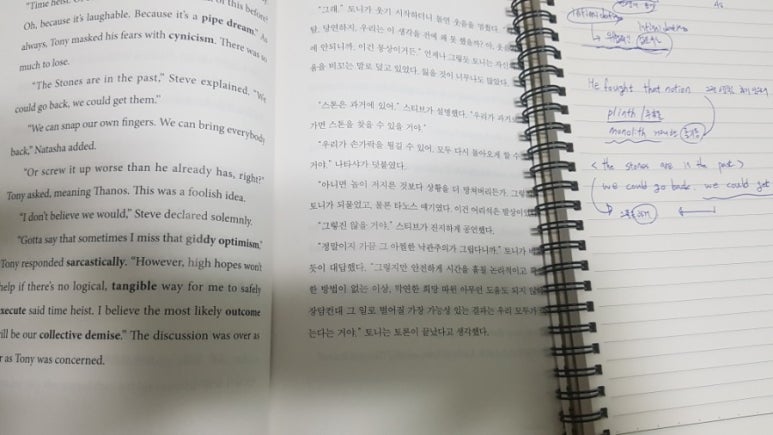 "Time heist. of this before?
Oh, because it's laughable. Because it's a pipe dream." As
always, Tony masked his fears with cynicism. There was so
much to lose.
"The Stones are in the past," Steve explained. "We
could go back, we could get them."
"We can snap our own fingers. We can bring everybody
back," Natasha added.
"Or screw it up worse than he already has, right?"
Tony asked, meaning Thanos. This was a foolish idea.
"I don't believe we would," Steve declared solemnly.
"Gotta say that sometimes I miss that giddy optimism,"
Tony responded sarcastically. "However, high hopes won't
help if there's no logical, tangible way for me to safely
execute said time heist. I believe the most likely outcome
will be our collective demise." The discussion was over as
as Tony was concerned.
"그래." 토니가 웃기 시작하더니 돌연 웃음을 멈췄다.
탈. 당연하지. 우리는 이 생각을 전에 왜 못 했을까? 아,
에 안되니까. 이건 몽상이거든." 언제나 그렇듯 토니는 자신
움을 비꼬는 말로 덮고 있었다. 잃을 것이 너무나도 많았다.
"스톤은 과거에 있어." 스티브가 설명했다. "우리가 과거로
가면 스톤을 찾을 수 있을 거야."
"우리가 손가락을 튕길 수 있어. 모두 다 돌아오게 할 수
거야." 나타샤가 덧붙였다.
"아니면 놈이 저지른 것보다 상황을 더 망쳐버리든가.
토니가 되물었고, 물론 타노스 얘기였다. 이건 어리석은 발상이었
"그렇진 않을 거야." 스티브가 진지하게 공언했다.
"정말이지 가끔 그 아찔한 낙관주의가 그립다니까." 토니가
듯이 대답했다. "그렇지만 안전하게 시간을 훔칠 논리적이고
한 방법이 없는 이상, 막연한 희망 따윈 아무런 도움도 되지
장담컨대 그 일로 벌어질 가장 가능성 있는 결과는 우리 모두가
는다는 거야." 토니는 토론이 끝났다고 생각했다.
He fought that notion
plinth /
monolith
< the stones are in the past >
we could go back. we could get